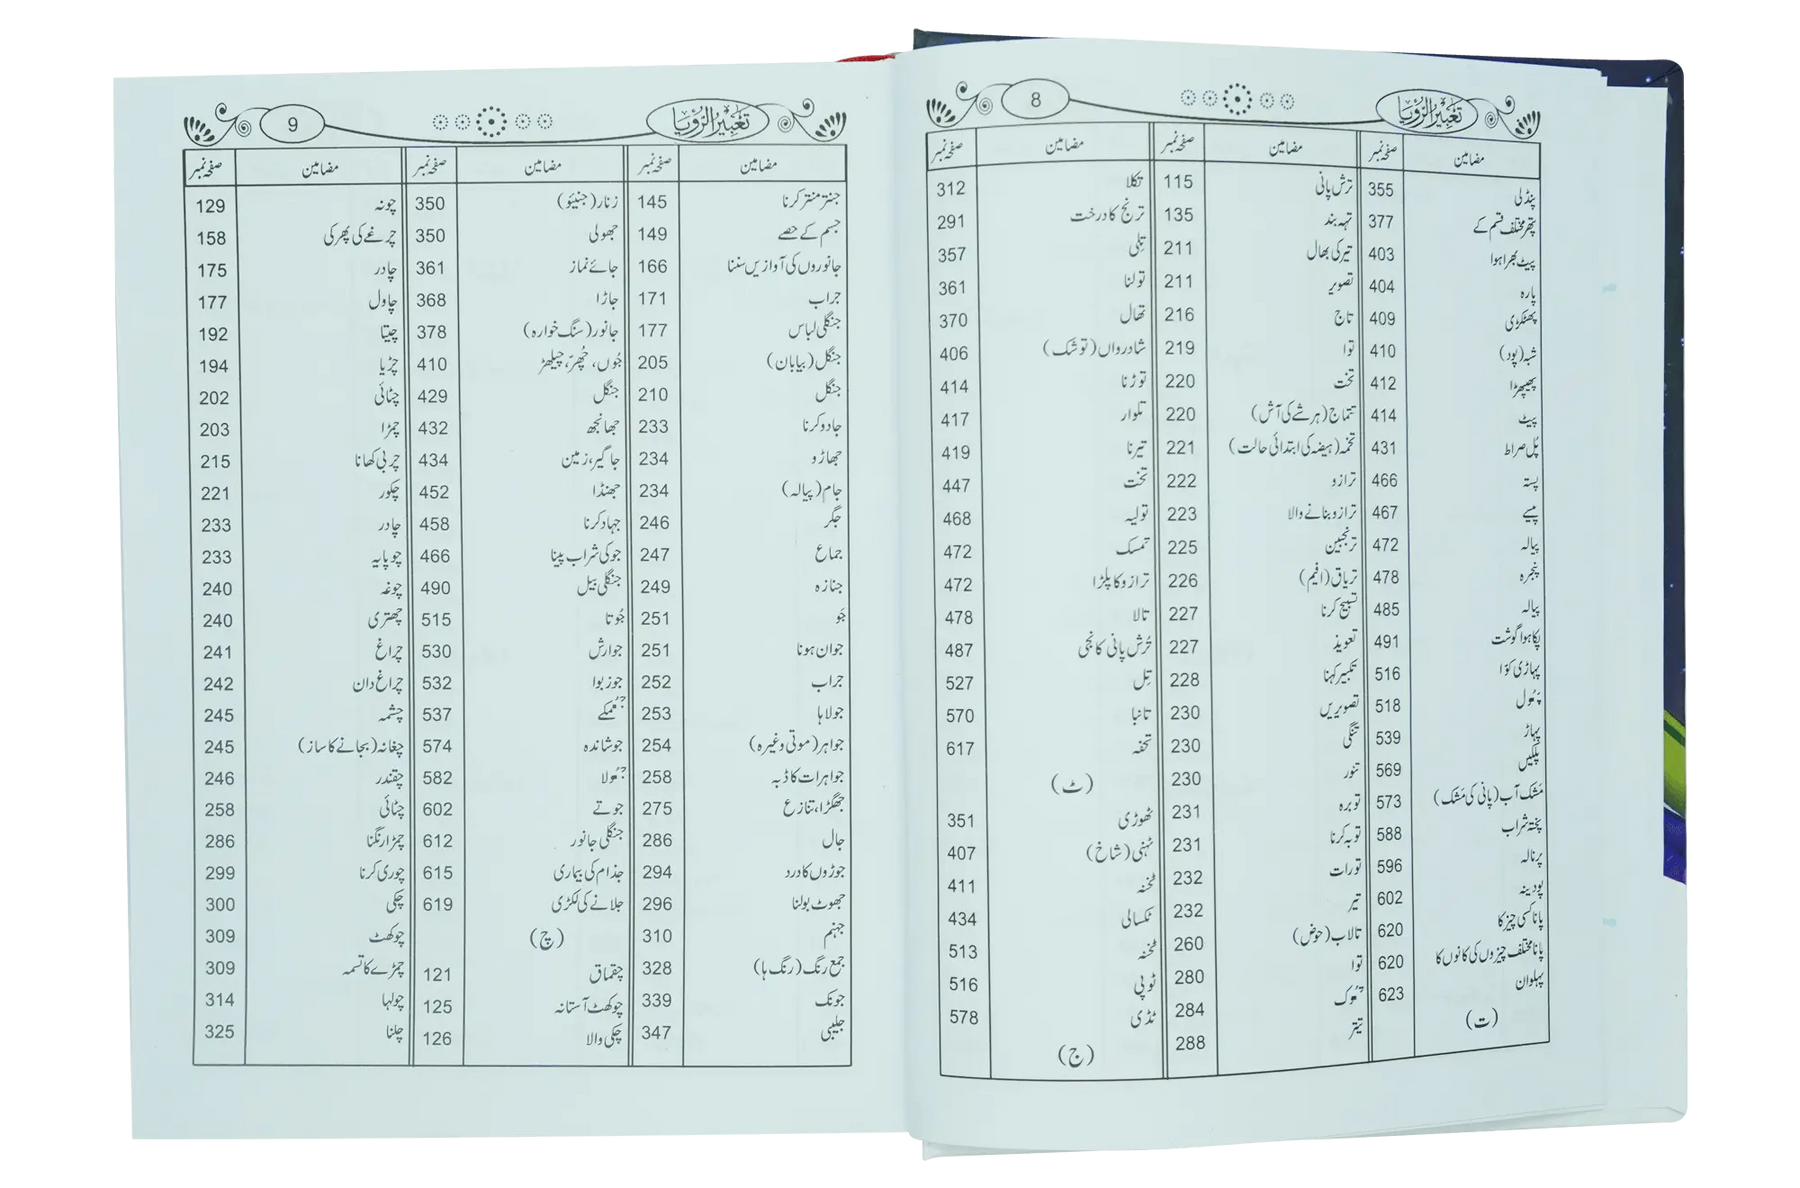 تعبیر الرؤیا
8
مضامین صفحہ نمبر مضامین صفحہ نمبر مضامین صفحہ نمبر
پنڈلی 355
پتھر مختلف قسم کے 377
پیٹ بھرا ہوا 403
پارہ 404
پھٹکڑی 409
شبہ (پود) 410
پھیپھڑا 412
پیٹ 414
پُل صراط 431
پستہ 466
پیسے 467
پیالہ 472
پنجرہ 478
پیالہ 485
پکا ہوا گوشت 491
پہاڑی کوّا 516
پھول 518
پہاڑ 539
پلکیں 569
مَشک آب (پانی کی مَشک) 573
پختہ شراب 588
پرنالہ 596
پودینہ 602
پانا کسی چیز کا 620
پانا مختلف چیزوں کی کانوں کا 620
پہلوان 623
(ت)
ترش پانی 115
تہہ بند 135
تیر کی بھال 211
تصویر 211
تاج 216
توا 219
تخت 220
تتماج (ہر شے کی آش) 220
تخمہ (ہیضہ کی ابتدائی حالت) 221
ترازو 222
ترازو بنانے والا 223
ترنجبین 225
تریاق (افیم) 226
تسبیح کرنا 227
تعویذ 227
تکبیر کہنا 228
تصویریں 230
تنگی 230
تنور 230
توبرہ 231
توبہ کرنا 231
تورات 232
تیر 232
تالاب (حوض) 260
توا 280
تھوک 284
تیتر 288
تکلا 312
ترنج کا درخت 291
تِلی 357
تولنا 361
تھال 370
شادرواں (توشک) 406
توڑنا 414
تلوار 417
تیرنا 419
تخت 447
تولیہ 468
تمسک 472
ترازو کا پلڑا 472
تالا 478
تُرش پانی کا نجی 487
تِل 527
تانبا 570
تحفہ 617
(ٹ)
ٹھوڑی 351
ٹہنی (شاخ) 407
ٹخنہ 411
ٹکسالی 434
ٹخنہ 513
ٹوپی 516
ٹڈی 578
(ج)
تعبیر الرؤیا
9
مضامین صفحہ نمبر مضامین صفحہ نمبر مضامین صفحہ نمبر
جنتر منتر کرنا 145
جسم کے حصے 149
جانوروں کی آوازیں سننا 166
جراب 171
جنگلی لباس 177
جنگل (بیابان) 205
جنگل 210
جادو کرنا 233
جھاڑو 234
جام (پیالہ) 234
جگر 246
جماع 247
جنازہ 249
جَو 251
جوان ہونا 251
جراب 252
جولاہا 253
جواہر (موتی وغیرہ) 254
جواہرات کا ڈبہ 258
جھگڑا، تنازع 275
جال 286
جوڑوں کا درد 294
جھوٹ بولنا 296
جہنم 310
جمع رنگ (رنگ ہا) 328
جونک 339
جلیبی 347
زنار (جنیئو) 350
جھولی 350
جائے نماز 361
جاڑا 368
جانور (سنگ خوارہ) 378
جُوں، مچھر، چیلھڑ 410
جنگل 429
جھانجھ 432
جاگیر، زمین 434
جھنڈا 452
جہاد کرنا 458
جو کی شراب پینا 466
جنگلی بیل 490
جُوتا 515
جوارش 530
جوزبوا 532
جھمکے 537
جوشاندہ 574
جھولا 582
جوتے 602
جنگلی جانور 612
جذام کی بیماری 615
جلانے کی لکڑی 619
(چ)
چقماق 121
چوکھٹ آستانہ 125
چکی والا 126
چونہ 129
چرغے کی پھرکی 158
چادر 175
چاول 177
چیتا 192
چڑیا 194
چٹائی 202
چمڑا 203
چربی کھانا 215
چکور 221
چادر 233
چوپایہ 233
چوغہ 240
چھتری 240
چراغ 241
چراغ دان 242
چشمہ 245
چغانہ (بجانے کا ساز) 245
چقندر 246
چٹائی 258
چمڑا رنگنا 286
چوری کرنا 299
چکی 300
چوکھٹ 309
چمڑے کا تسمہ 309
چولہا 314
چلنا 325